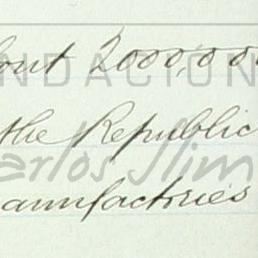 out 2000,00
NDACIÓN
the Republic
arlos Slim
anufactories